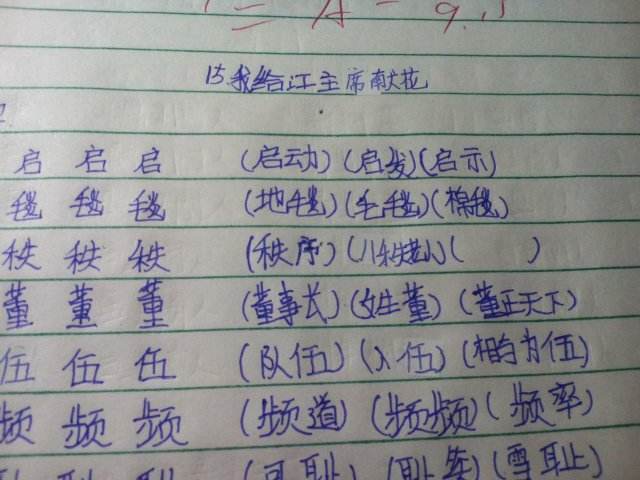 二 A - 9.
15.我给江主席献花
启 启 启 (启动) (启发) (启示)
毯 毯 毯 (地毯) (毛毯) (棉毯)
秩 秩 秩 (秩序) ( )
董 董 董 (董事长) (姓董) (董正天下)
伍 伍 伍 (队伍) (入伍) (相约为伍)
频 频 频 (频道) (频频) (频率)
耻 耻 (可耻) (耻笑) (雪耻)